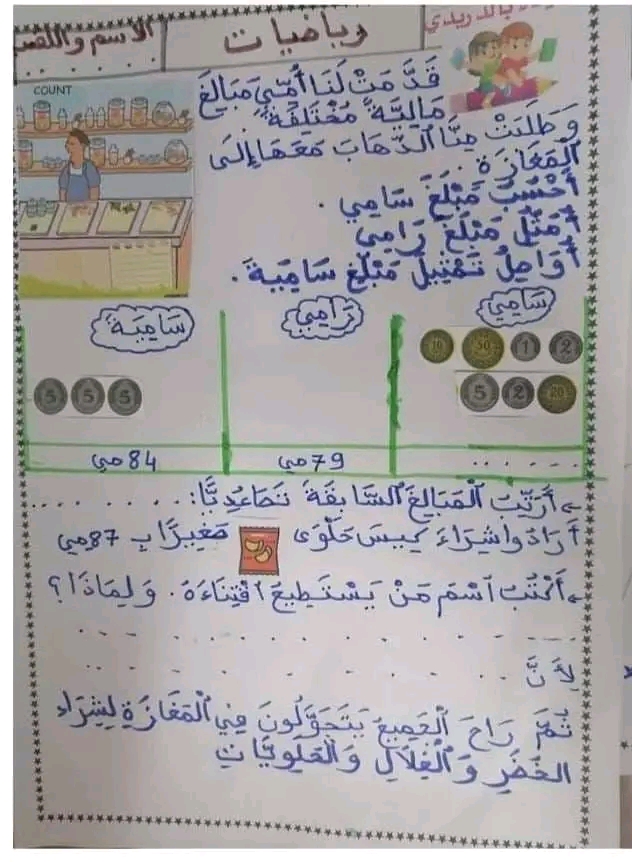 رياضيات
الاسم واللقب
. . . . . .
COUNT
قَدَّمَتْ لَنَا أُمِّي مَبَالِغَ
مَالِيَّةً مُخْتَلِفَةً
وَطَلَبَتْ مِنَّا الذَّهَابَ مَعَهَا إِلَى
الْمَغَازَةِ.
أَحْسُبُ مَبْلَغَ سَامِي.
أُمَثِّلُ مَبْلَغَ رَامِي
أُوَاصِلُ تَمْثِيلَ مَبْلَغِ سَامِيَة.
سَامِي
رَامِي
سَامِيَة
10 50 1 2
5 2 20
5 5 5
. . . . . .
79 مي
84 مي
أُرَتِّبُ الْمَبَالِغَ السَّابِقَةَ تَصَاعُدِيًّا: . . . . . . . .
أَرَادُوا شِرَاءَ كِيسَ حَلْوَى صَغِيرًا بِ 87 مي
أَكْتُبُ اسْمَ مَنْ يَسْتَطِيعُ اقْتِنَاءَهُ. وَلِمَاذَا؟
. . . . . . . . . . . . . .
لِأَنَّ . . . . . . . . . . . .
ثُمَّ رَاحَ الْجَمِيعُ يَتَجَوَّلُونَ فِي الْمَغَازَةِ لِشِرَاءِ
الْخُضَرِ وَالْغِلَالِ وَالْحَلَوِيَّاتِ